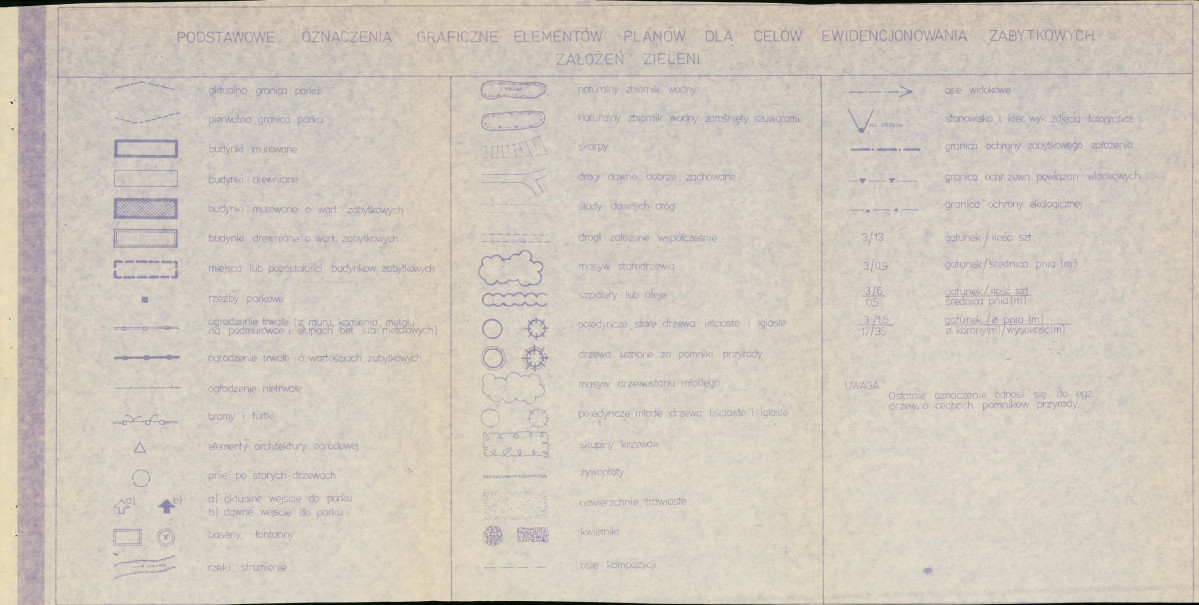 PODSTAWOWE OZNACZENIA GRAFICZNE ELEMENTÓW PLANÓW DLA CELÓW EWIDENCJONOWANIA ZABYTKOWYCH
ZAŁOŻEŃ ZIELENI
aktualna granica parku
pierwotna granica parku
budynki murowane
budynki drewniane
budynki murowane o wart. zabytkowych
budynki drewniane o wart. zabytkowych
miejsca lub pozostałości budynków zabytkowych
rzeźby parkowe
ogrodzenie trwałe (z muru, kamienia, metalu
na podmurówce i słupach bet. lub metalowych)
ogrodzenie trwałe o wartościach zabytkowych
ogrodzenie nietrwałe
bramy i furtki
elementy architektury ogrodowej
pnie po starych drzewach
a) b)
a) aktualne wejście do parku
b) dawne wejście do parku
baseny, fontanny
rzeki, strumienie
naturalny zbiornik wodny
naturalny zbiornik wodny zarośnięty szuwarami
skarpy
drogi dawne dobrze zachowane
ślady dawnych dróg
drogi założone współcześnie
masyw starodrzewia
szpalery lub aleje
pojedyncze stare drzewa liściaste i iglaste
drzewa uznane za pomniki przyrody
masyw drzewostanu młodego
pojedyncze młode drzewa liściaste i iglaste
skupiny krzewów
żywopłoty
nawierzchnie trawiaste
kwietniki
osie kompozycji
osie widokowe
stanowisko i kier. wyk. zdjęcia fotograficz.
granica ochrony zabytkowego założenia
granica ochr. zewn. powiązań widokowych
granica ochrony ekologicznej
3/13 gatunek/ilość szt.
3/0,9 gatunek/średnica pnia (m)
3/6 gatunek/ilość szt.
0,5 średnica pnia (m)
3/1,5 gatunek/ø pnia (m)
17/35 ø korony(m)/wysokość(m)
UWAGA
Ostatnie oznaczenie odnosi się do egz.
drzew o cechach pomników przyrody.